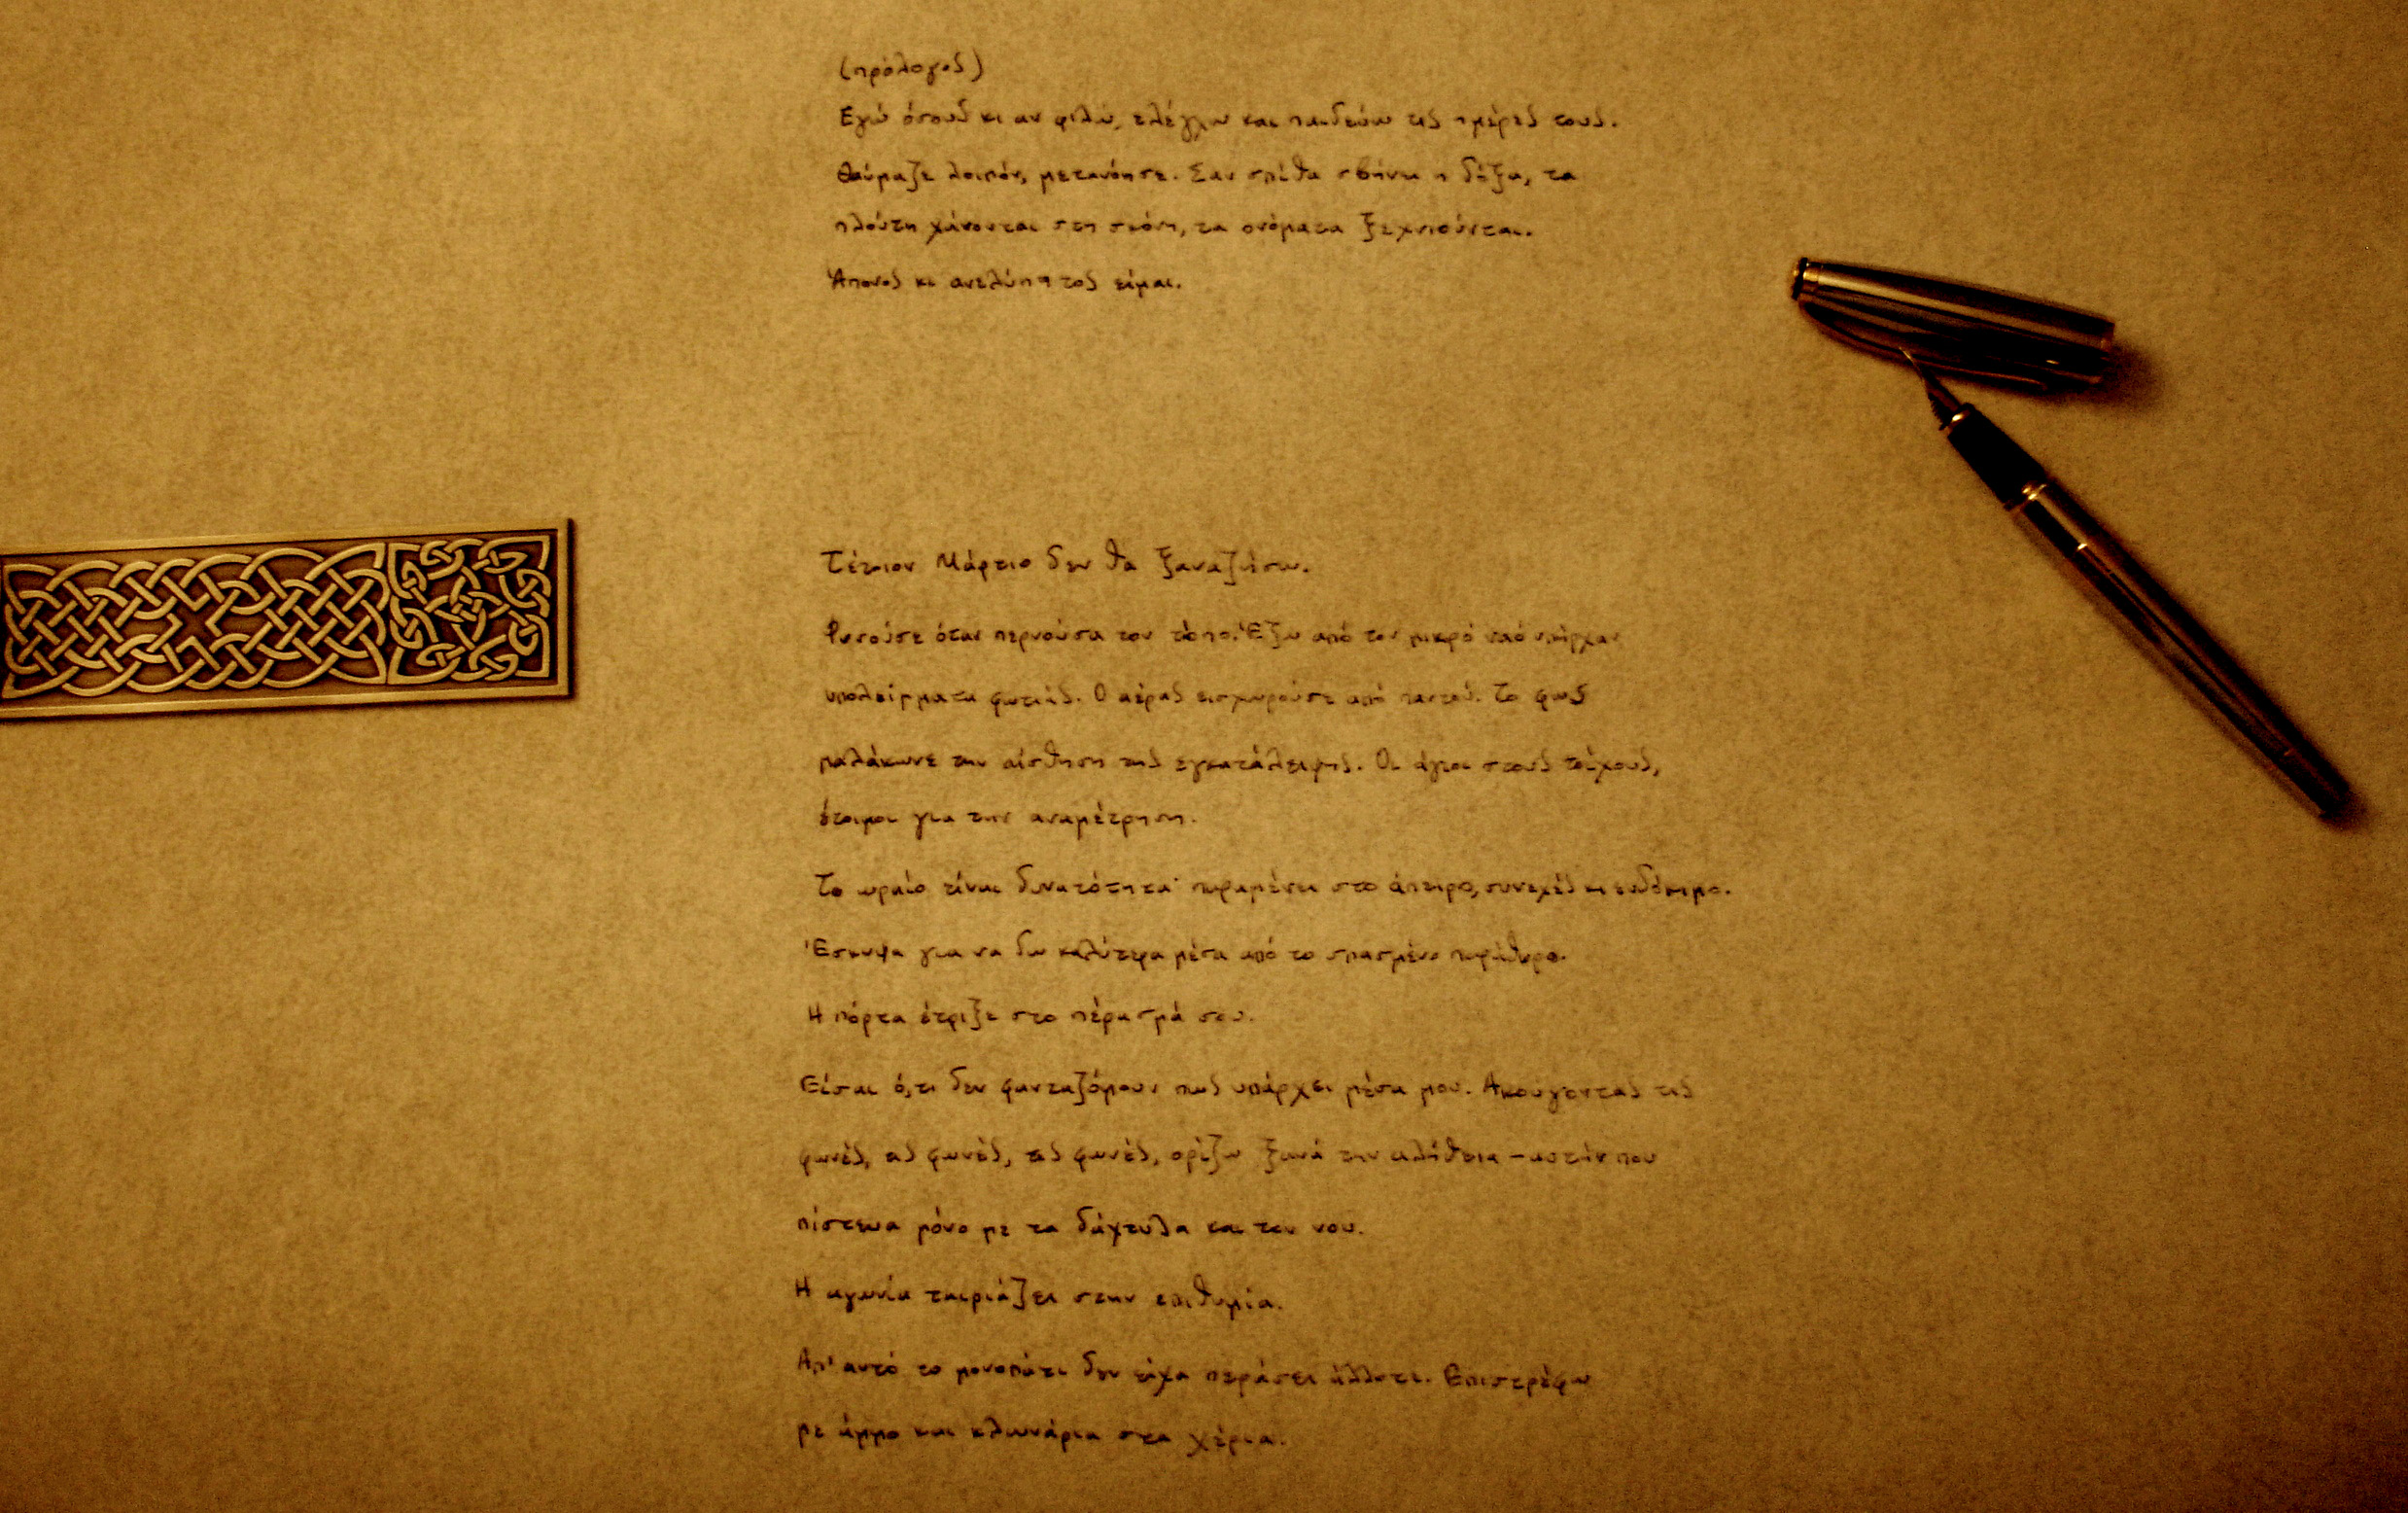 (πρόλογος)
Εγώ όσους κι αν φιλώ, ελέγχω και παιδεύω τις ημέρες τους.
Θαύμαζε λοιπόν, μετανόησε. Σαν σπίθα σβήνει η δόξα, τα
πλούτη χάνονται στη σκόνη, τα ονόματα ξεχνιούνται.
Άπονος κι ανελύπητος είμαι.
Τέτοιον Μάρτιο δεν θα ξαναζήσω.
Φυσούσε όταν περνούσα τον τόπο. Έξω από τον μικρό ναό υπήρχαν
υπολείμματα φωτιάς. Ο αέρας εισχωρούσε από παντού. Το φως
μαλάκωνε την αίσθηση της εγκατάλειψης. Οι άγιοι στους τοίχους,
έτοιμοι για την αναμέτρηση.
Το ωραίο είναι δυνατότητα· παραμένει στο άπειρο, συνεχές κι ευδόκιμο.
Έσκυψα για να δω καλύτερα μέσα από το σπασμένο παράθυρο.
Η πόρτα έτριξε στο πέρασμά σου.
Είσαι ό,τι δεν φανταζόμουν πως υπάρχει μέσα μου. Ακούγοντας τις
φωνές, τις φωνές, τις φωνές, ορίζω ξανά την αλήθεια – αυτήν που
πίστευα μόνο με τα δάχτυλα και τον νου.
Η αγωνία ταιριάζει στην επιθυμία.
Απ' αυτό το μονοπάτι δεν είχα περάσει άλλοτε. Επιστρέφω
με άμμο και κλωνάρια στα χέρια.